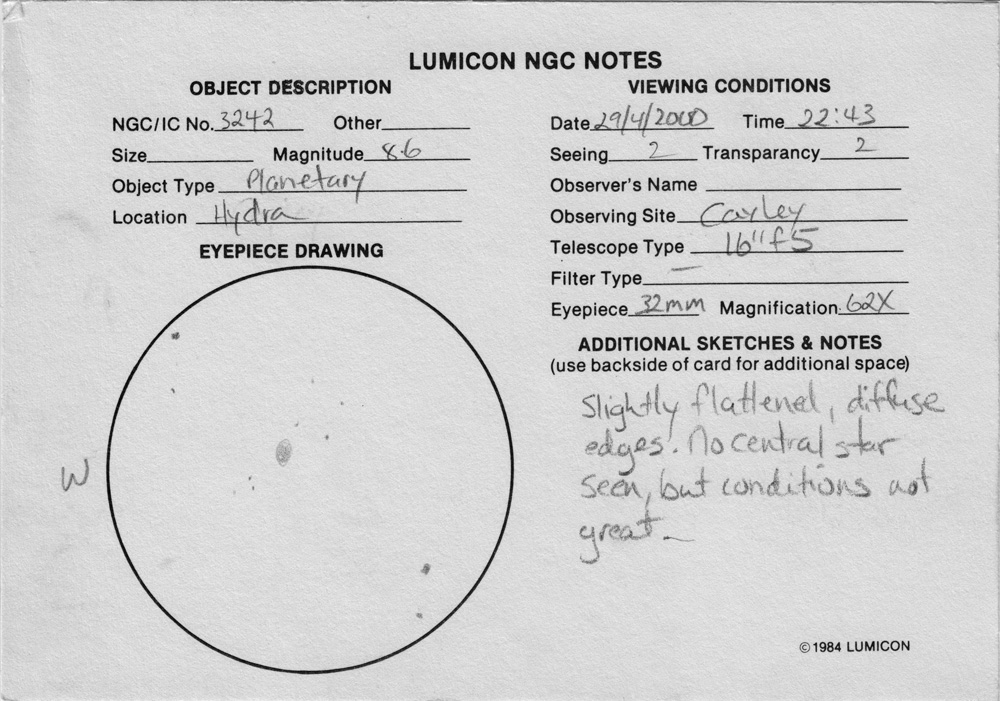 LUMICON NGC NOTES
OBJECT DESCRIPTION
NGC/IC No. 3242 Other
Size Magnitude 8.6
Object Type Planetary
Location Hydra
EYEPIECE DRAWING
W
VIEWING CONDITIONS
Date 29/4/2000 Time 22:43
Seeing 2 Transparancy 2
Observer's Name
Observing Site Cayley
Telescope Type 16" f5
Filter Type —
Eyepiece 32mm Magnification: 62X
ADDITIONAL SKETCHES & NOTES
(use backside of card for additional space)
Slightly flattened, diffuse
edges. No central star
seen, but conditions not
great.
©1984 LUMICON